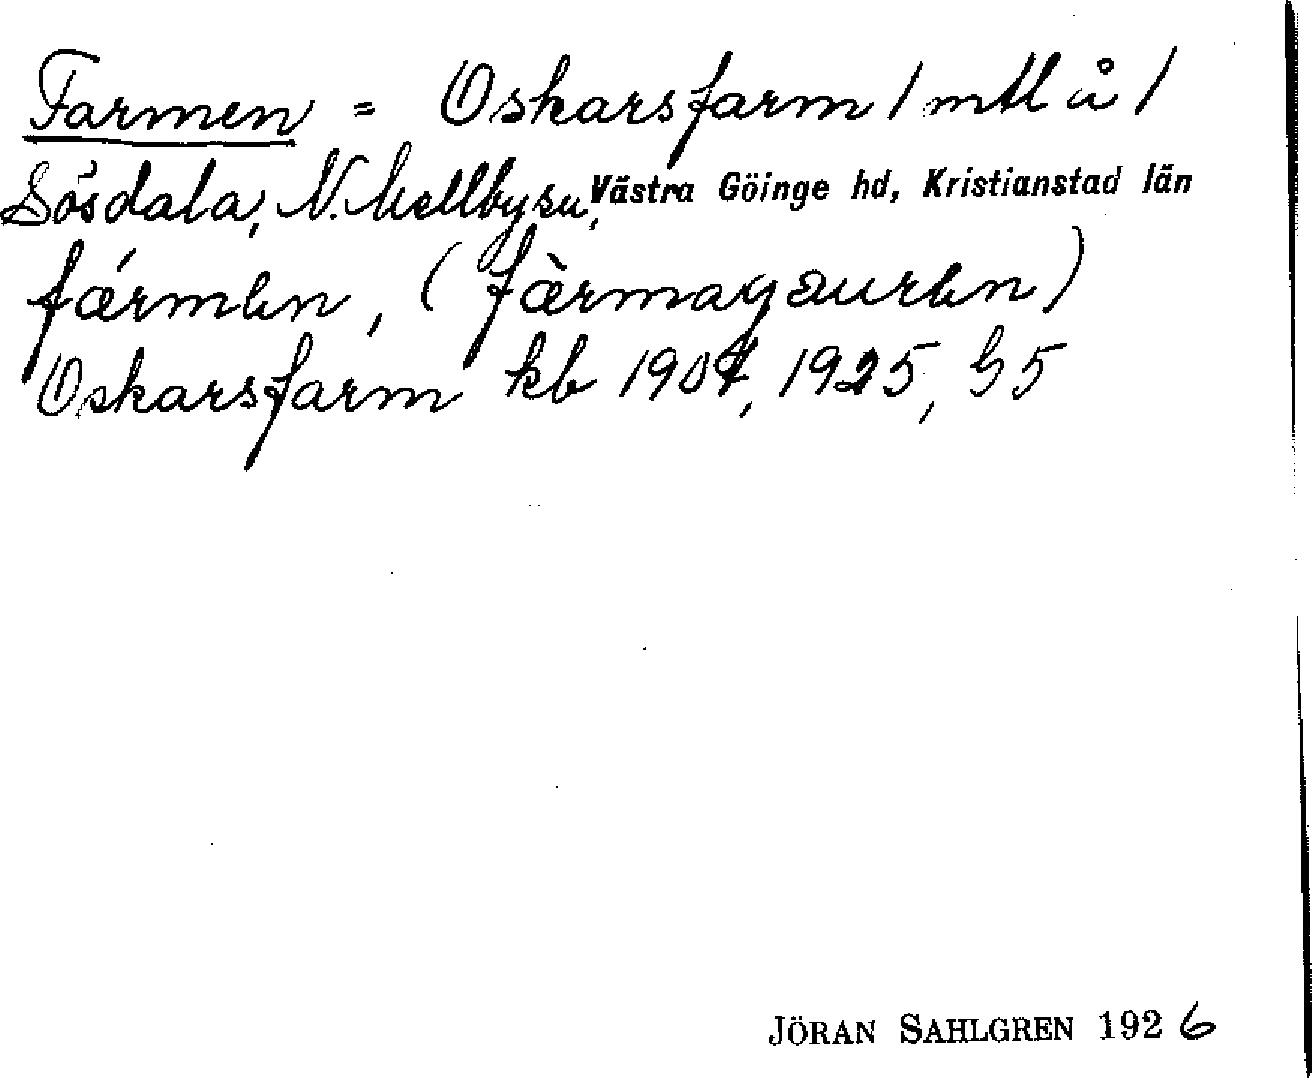 Farmen = Oskarsfarm / mtl å /
Sösdala, N. Mellby sn, Västra Göinge hd, Kristianstad län
fármən, (fàrmagaurən)
Oskarsfarm kb 1904, 1925, S5
JÖRAN SAHLGREN 1926